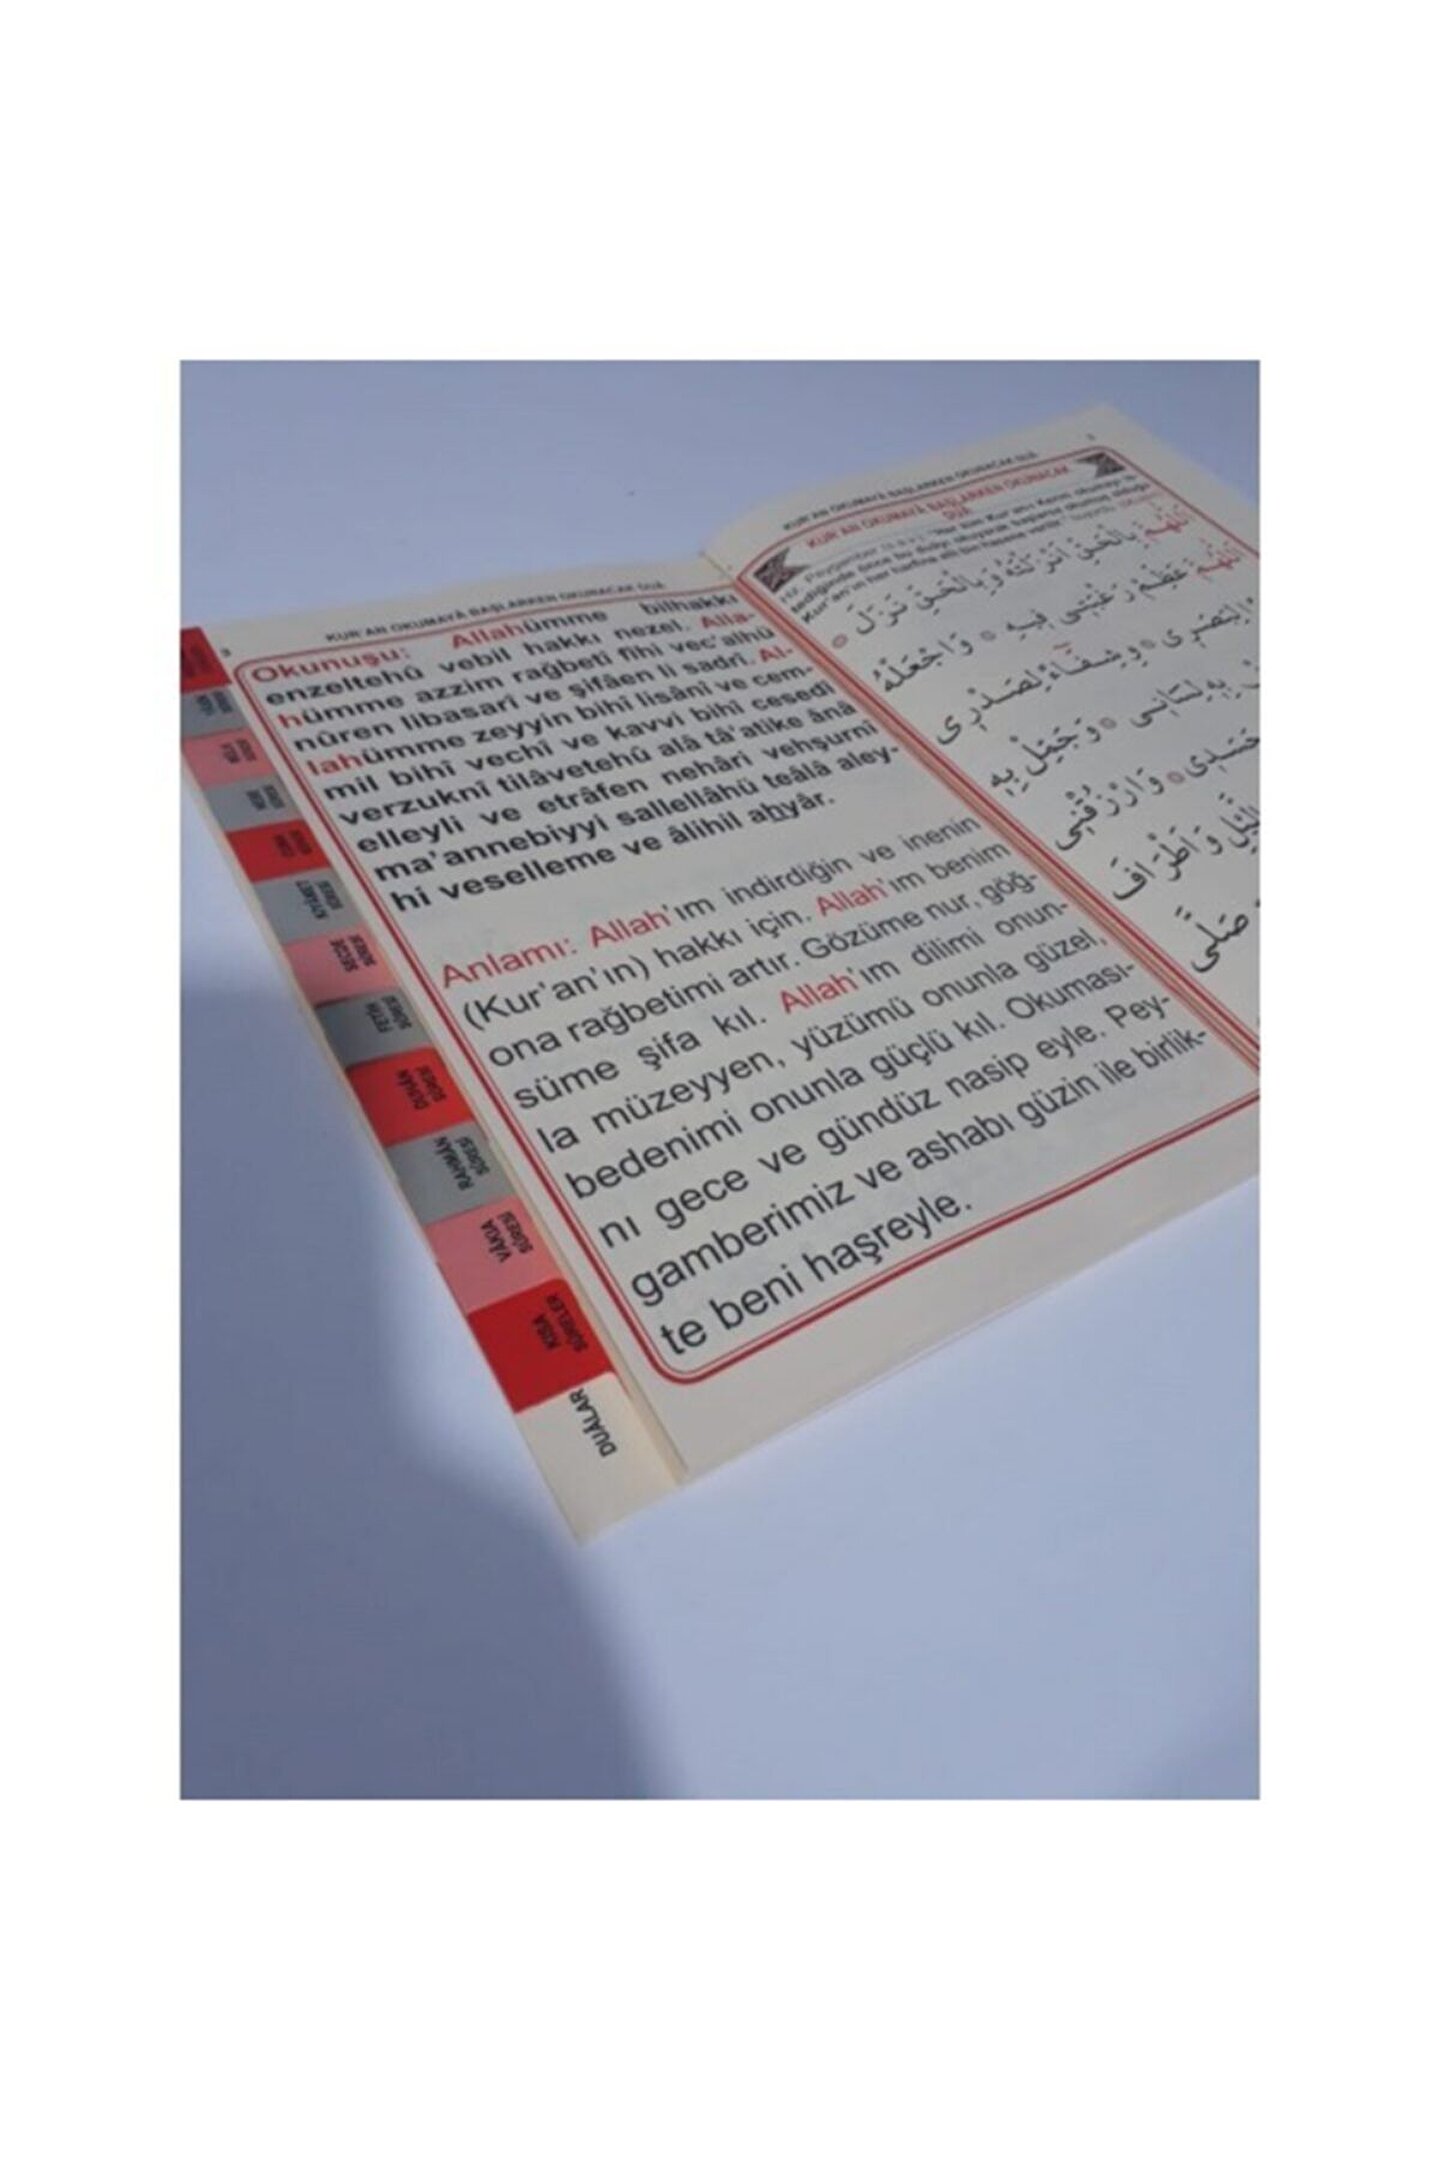 KUR'AN OKUMAYA BAŞLARKEN OKUNACAK DUÂ
3
Okunuşu: Allahümme bilhakkı
enzeltehû vebil hakkı nezel. Alla-
hümme azzim rağbetî fîhi vec'alhü
nûren libasarî ve şifâen li sadrî. Al-
lahümme zeyyin bihî lisâni ve cem-
mil bihî vechî ve kavvi bihî cesedî
verzuknî tilâvetehû alâ tâ'atike ânâ
elleyli ve etrâfen nehâri vehşurnî
ma'annebiyyi sallellâhü teâlâ aley-
hi veselleme ve âlihil ahyâr.
Anlamı: Allah'ım indirdiğin ve inenin
(Kur'an'ın) hakkı için. Allah'ım benim
ona rağbetimi artır. Gözüme nur, göğ-
süme şifa kıl. Allah'ım dilimi onun-
la müzeyyen, yüzümü onunla güzel,
bedenimi onunla güçlü kıl. Okuması-
nı gece ve gündüz nasip eyle. Pey-
gamberimiz ve ashabı güzin ile birlik-
te beni haşreyle.
KIYÂMET
SÛRESİ
SECDE
SÛRESİ
FETİH
SÛRESİ
DUHÂN
SÛRESİ
RAHMÂN
SÛRESİ
VÂKIA
SÛRESİ
KISA
SÛRELER
DUÂLAR
KUR'AN OKUMAYA BAŞLARKEN OKUNACAK DUÂ
KUR'AN OKUMAYA BAŞLARKEN OKUNACAK
DUÂ
اَللّٰهُمَّ بِالْحَقِّ اَنْزَلْتَهُ وَبِالْحَقِّ نَزَلَ
اَللّٰهُمَّ عَظِّمْ رَغْبَتِى فِيهِ وَاجْعَلْهُ
لِبَصَرِى وَشِفَاءً لِصَدْرِى
بِهِ لِسَانِى وَجَمِّلْ بِهِ
جَسَدِى وَارْزُقْنِى
الَّيْلِ وَاَطْرَافَ
صَلَّى